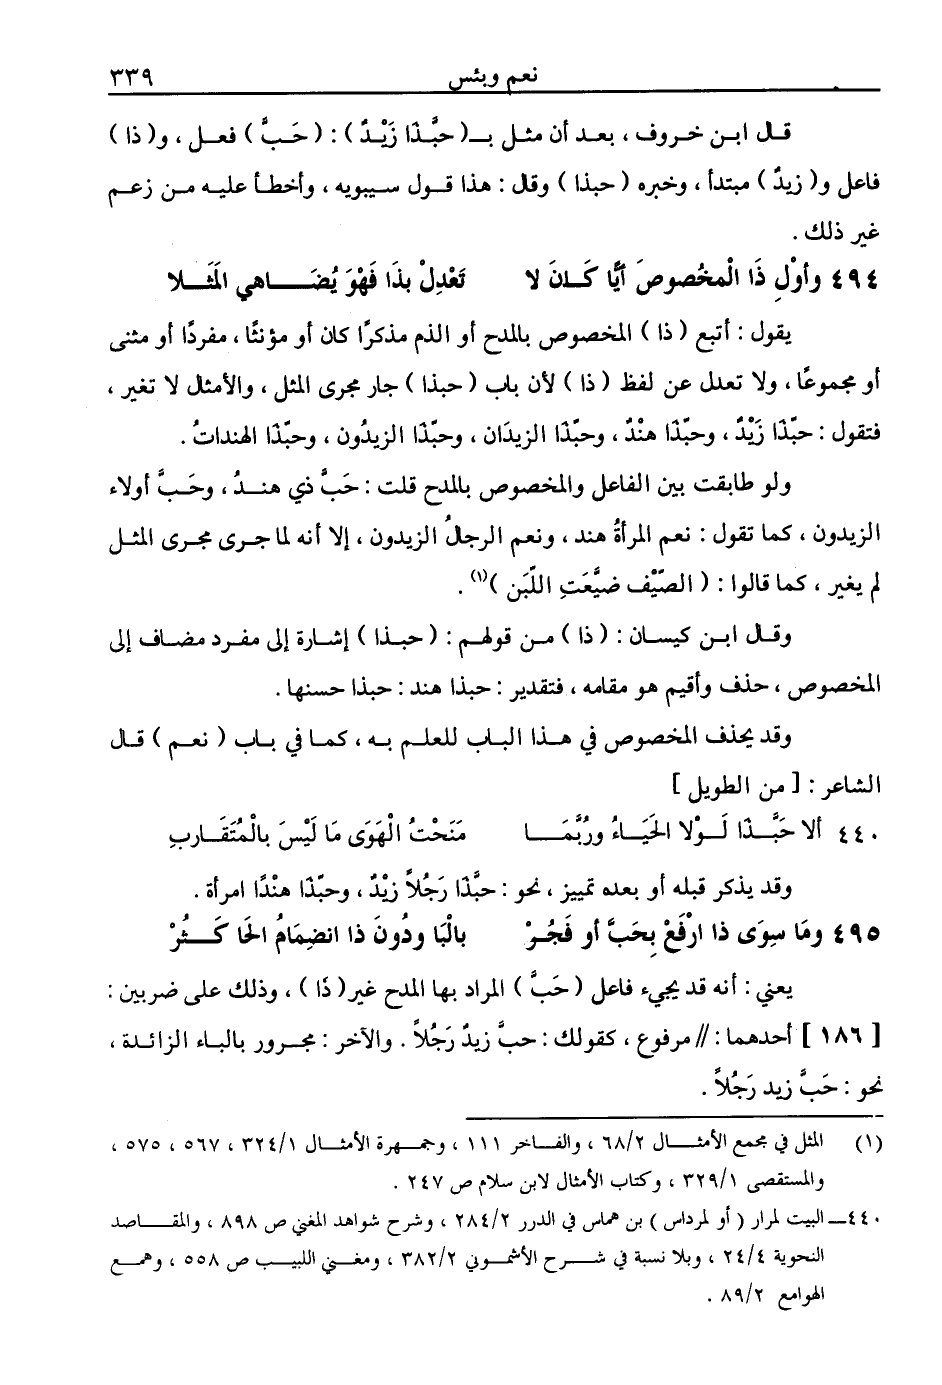 نعم وبئس ٣٣٩
قال ابن خروف ، بعد أن مثل بـ( حبَّذَا زَيْدٌ ) : ( حَبَّ ) فعل ، و( ذا )
فاعل و( زيدٌ ) مبتدأ ، وخبره ( حبذا ) وقال : هذا قول سيبويه ، وأخطأ عليه من زعم
غير ذلك .
٤٩٤ وأوْلِ ذَا الْمخُصوصَ أيًّا كَـانَ لا تَعْدِلْ بذَا فَهْوَ يُضَـــاهي الْمَثَـــلا
يقول : أتبع ( ذا ) المخصوص بالمدح أو الذم مذكرًا كان أو مؤنثًا ، مفردًا أو مثنى
أو مجموعًا ، ولا تعدل عن لفظ ( ذا ) لأن باب ( حبذا ) جار مجرى المثل ، والأمثال لا تغير ،
فتقول : حبّذَا زَيْدٌ ، وحبّذَا هنْدٌ ، وحبّذَا الزيدَان ، وحبّذَا الزيدُون ، وحبّذَا الهنداتُ .
ولو طابقت بين الفاعل والمخصوص بالمدح قلت : حَبَّ ذي هنـدُ ، وحَـبَّ أولاء
الزيدون ، كما تقول : نعم المرأةُ هند ، ونعم الرجالُ الزيدون ، إلا أنه لما جرى مجرى المثل
لم يغير ، كما قالوا : ( الصّيْف ضيَّعَتِ اللّبَن )(١) .
وقال ابن كيسان : ( ذا ) من قولهم : ( حبذا ) إشارة إلى مفرد مضاف إلى
المخصوص ، حذف وأقيم هو مقامه ، فتقدير : حبذا هند : حبذا حسنها .
وقد يحذف المخصوص في هذا الباب للعلم به ، كما في باب ( نعم ) قال
الشاعر : [ من الطويل ]
٤٤٠ ألا حَبَّـذَا لَـوْلا الحَيَـاءُ ورُبَّمَـــا مَنَحْتُ الْهَوَى مَا لَيْسَ بالْمُتَقَـاربِ
وقد يذكر قبله أو بعده تمييز ، نحو : حبَّذَا رَجُلاً زيْدٌ ، وحبّذَا هنْدًا امرأة .
٤٩٥ ومَا سِوَى ذا ارْفَعْ بِحَبَّ أو فَجُـرْ بالْبَا ودُونَ ذا انضِمَامُ الْحَا كَــثُرْ
يعني : أنه قد يجيء فاعل ( حَبَّ ) المراد بها المدح غير( ذَا ) ، وذلك على ضربين :
[ ١٨٦ ] أحدهما : // مرفوع ، كقولك : حبَّ زيدٌ رَجُلاً . والآخر : مجرور بالباء الزائدة ،
نحو : حَبَّ زيد رَجُلاً .
(١) المثل في مجمع الأمثـال ٦٨/٢ ، والفـاخر ١١١ ، وجمهـرة الأمثـال ٣٢٤/١ ، ٥٦٧ ، ٥٧٥ ،
والمستقصى ٣٢٩/١ ، وكتاب الأمثال لابن سلام ص ٢٤٧ .
٤٤٠ــ البيت لمرار ( أو لمرداس ) بن هماس في الدرر ٢٨٤/٢ ، وشرح شواهد المغني ص ٨٩٨ ، والمقـاصد
النحوية ٢٤/٤ ، وبلا نسبة في شـرح الأشموني ٣٨٢/٢ ، ومغـني اللبيـب ص ٥٥٨ ، وهمـع
الهوامع ٨٩/٢ .